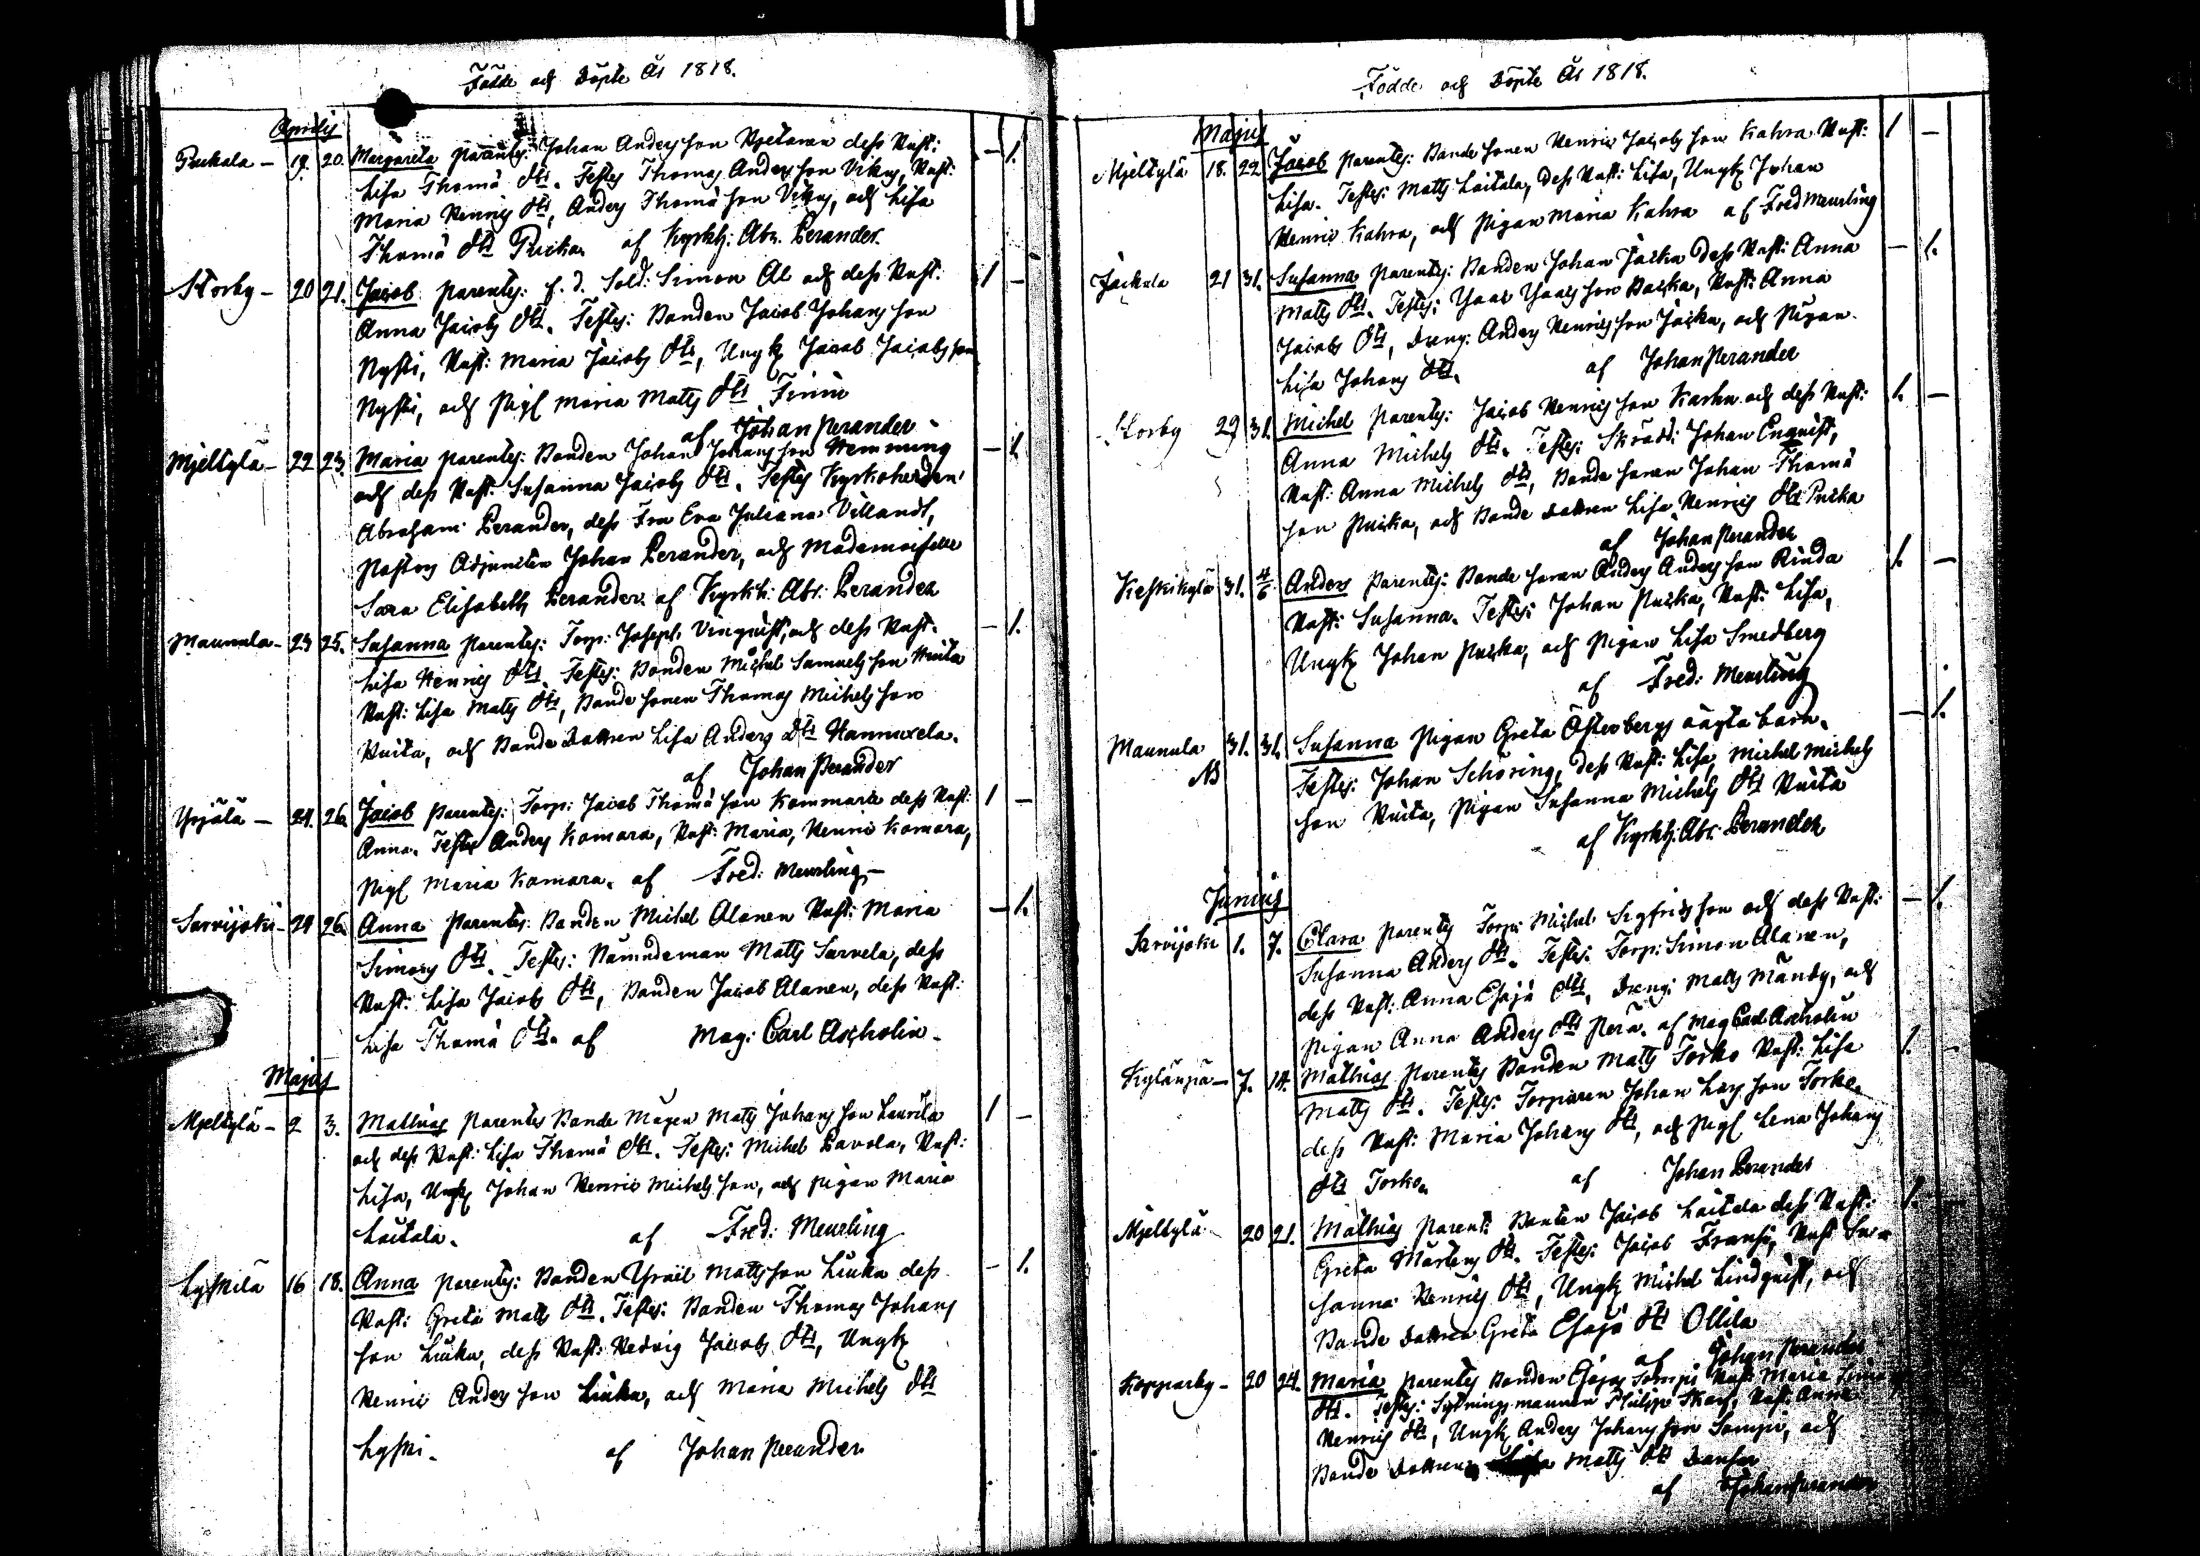 Födde och Döpte År 1818.
Aprilis
Puckala - 19. 20. Margareta parentes: Johan Anders son dess Hust: - 1.
Lisa Thomæ dtr. Testes Thomas Anders son Vikus, Hust:
Maria Henrics dtr, Anders Thomæ son Vikus, och Lisa
Thomæ dtr Pucka. af Kyrkh: Abr. Perander.
Storby - 20 21. Jacob parentes: f. d. Sold: Simon Al och dess Hust: 1 -
Anna Jacobs dtr. Testes: Bonden Jacob Johans son
Nysti, Hust: Maria Jacobs dtr, Ungk Jacob Jacobs son
Nysti, och Pig Maria Matts dtr
af Johan Perander
Mjeltylä - 22 23. Maria parentes: Bonden Johan Johans son Hemming - 1.
och dess Hust: Susanna Jacobs dtr. Testes Kyrkoherden
Abraham Perander, dess Fru Eva Juliana Villandt,
Pastors Adjuncten Johan Perander, och Mademoiselle
Sara Elisabeth Perander. af Kyrkh: Abr: Perander
Maunula - 23 25. Susanna parentes: Torp: Joseph Vinquist, och dess Hust. - 1.
Lisa Henrics dtr. Testes: Bonden Michel Samuels son
Hust: Lisa Matts dtr, Bonde sonen Thomas Michels son
Knuta, och Bonde dottren Lisa Anders Dtr Hannuxela.
af Johan Perander
Yrjälä - 24. 26. Jacob parentes: Torp: Jacob Thomæ son Kammara dess Hust: 1 -
Anna. Testes Anders Komara, Hust: Maria, Henric Komara,
Pig Maria Komara. af Fred: Meurling -
Sarvijoki - 24 26. Anna parentes: Bonden Michel Alanen Hust: Maria - 1.
Simons dtr. Testes: Nämndeman Matts Sarvela, dess
Hust: Lisa Jacobs dtr, Bonden Jacob Alanen, dess Hust:
Lisa Thomæ dtr. af Mag: Carl Asholin -
Majus
Mjeltylä - 2 3. Mathias parentes Bonde Mågen Matts Johans son Laurila 1 -
och dess Hust: Lisa Thomæ dtr. Testes: Michel Pavola, Hust:
Lisa, Ungk Johan Henric Michels son, och pigan Maria
Laitala. af Fred: Meurling
Lyskilä 16 18. Anna parentes: Bonden Ysrail Matts son Liuka dess - 1.
Hust: Greta Matts dtr. Testes: Bonden Thomas Johans
son Liuka, dess Hust: Hedvig Jacobs dtr, Ungk
Henric Anders son Liuka, och Maria Michels dtr
Lyski. af Johan Perander
Födde och Döpte År 1818.
Majus
Mjeltylä 18. 22 Jacob parentes: Bonde sonen Henric Jacobs son Kahra Hust: 1 -
Lisa. Testes: Matts Laitala, dess Hust: Lisa, Ungk Johan
Henric Kahra, och Pigan Maria Kahra af Fred Meurling
Jäckula 21 31. Susanna parentes: Bonden Johan Jäcku dess Hust: Anna - 1.
Matts dtr. Testes: Ysac Ysacs son Backa, Hust: Anna
Jacobs dtr, Dreng: Anders Henrics son Jäcku, och Pigan
Lisa Johans dtr. af Johan Perander
Storby 29 31. Michel parentes: Jacob Henrics son Karhu och dess Hust: 1. -
Anna Michels dtr. Testes: Skrädd: Johan Enquist,
Hust: Anna Michels dtr, Bonde sonen Johan Thomæ
son Pucka, och Bonde dottren Lisa Henrics dtr Pucka
af Johan Perander
Keskikylä 31. 4/6 Anders parentes: Bonde sonen Anders Anders son Rinda 1. -
Hust: Susanna. Testes: Johan Pucka, Hust: Lisa,
Ungk Johan Pucka, och Pigan Lisa Smedberg
af Fred: Meurling
Maunula 31. 31. Susanna Pigan Greta Österbergs oägta barn. - 1.
NB Testes: Johan Schöring, dess Hust: Lisa, Michel Michels
son Knuta, Pigan Susanna Michels dtr Knuta
af Kyrkh: Abr: Perander
Junius
Sarvijoki 1. 7. Clara parentes Torp: Michel Sigfrids son och dess Hust: - 1.
Susanna Anders dtr. Testes: Torp: Simon Alanen,
dess Hust: Anna Esajæ dtr, Dreng: Matts Mänty, och
Pigan Anna Anders dtr Perä. af Mag Carl Asholin
Kylänpä - 7. 14. Mathias parentes Bonden Matts Torko Hust: Lisa 1. -
Matts dtr. Testes: Torparen Johan Lars son Torko.
dess Hust: Maria Johans dtr, och Pig Lena Johans
dtr Torko. af Johan Perander
Mjeltylä 20 21. Mathias parent: Bonden Jacob Laitala dess Hust: 1. -
Greta Mårtens dtr. Testes: Jacob Fransi, Hust Su=
sanna Henrics dtr, Ungk Michel Lindquist, och
Bonde dottren Greta Esajæ dtr Ollila
af Johan Perander
Kopparby - 20 24. Maria parentes Bonden Esajas Sompi Hust Maria Simons
dtr. Testes: Sytningsmannen Philip Skars, Hust: Anna
Henrics dtr, Ungk Anders Johans son Sompi, och
Bonde dottren Matts dtr
af Johan Perander